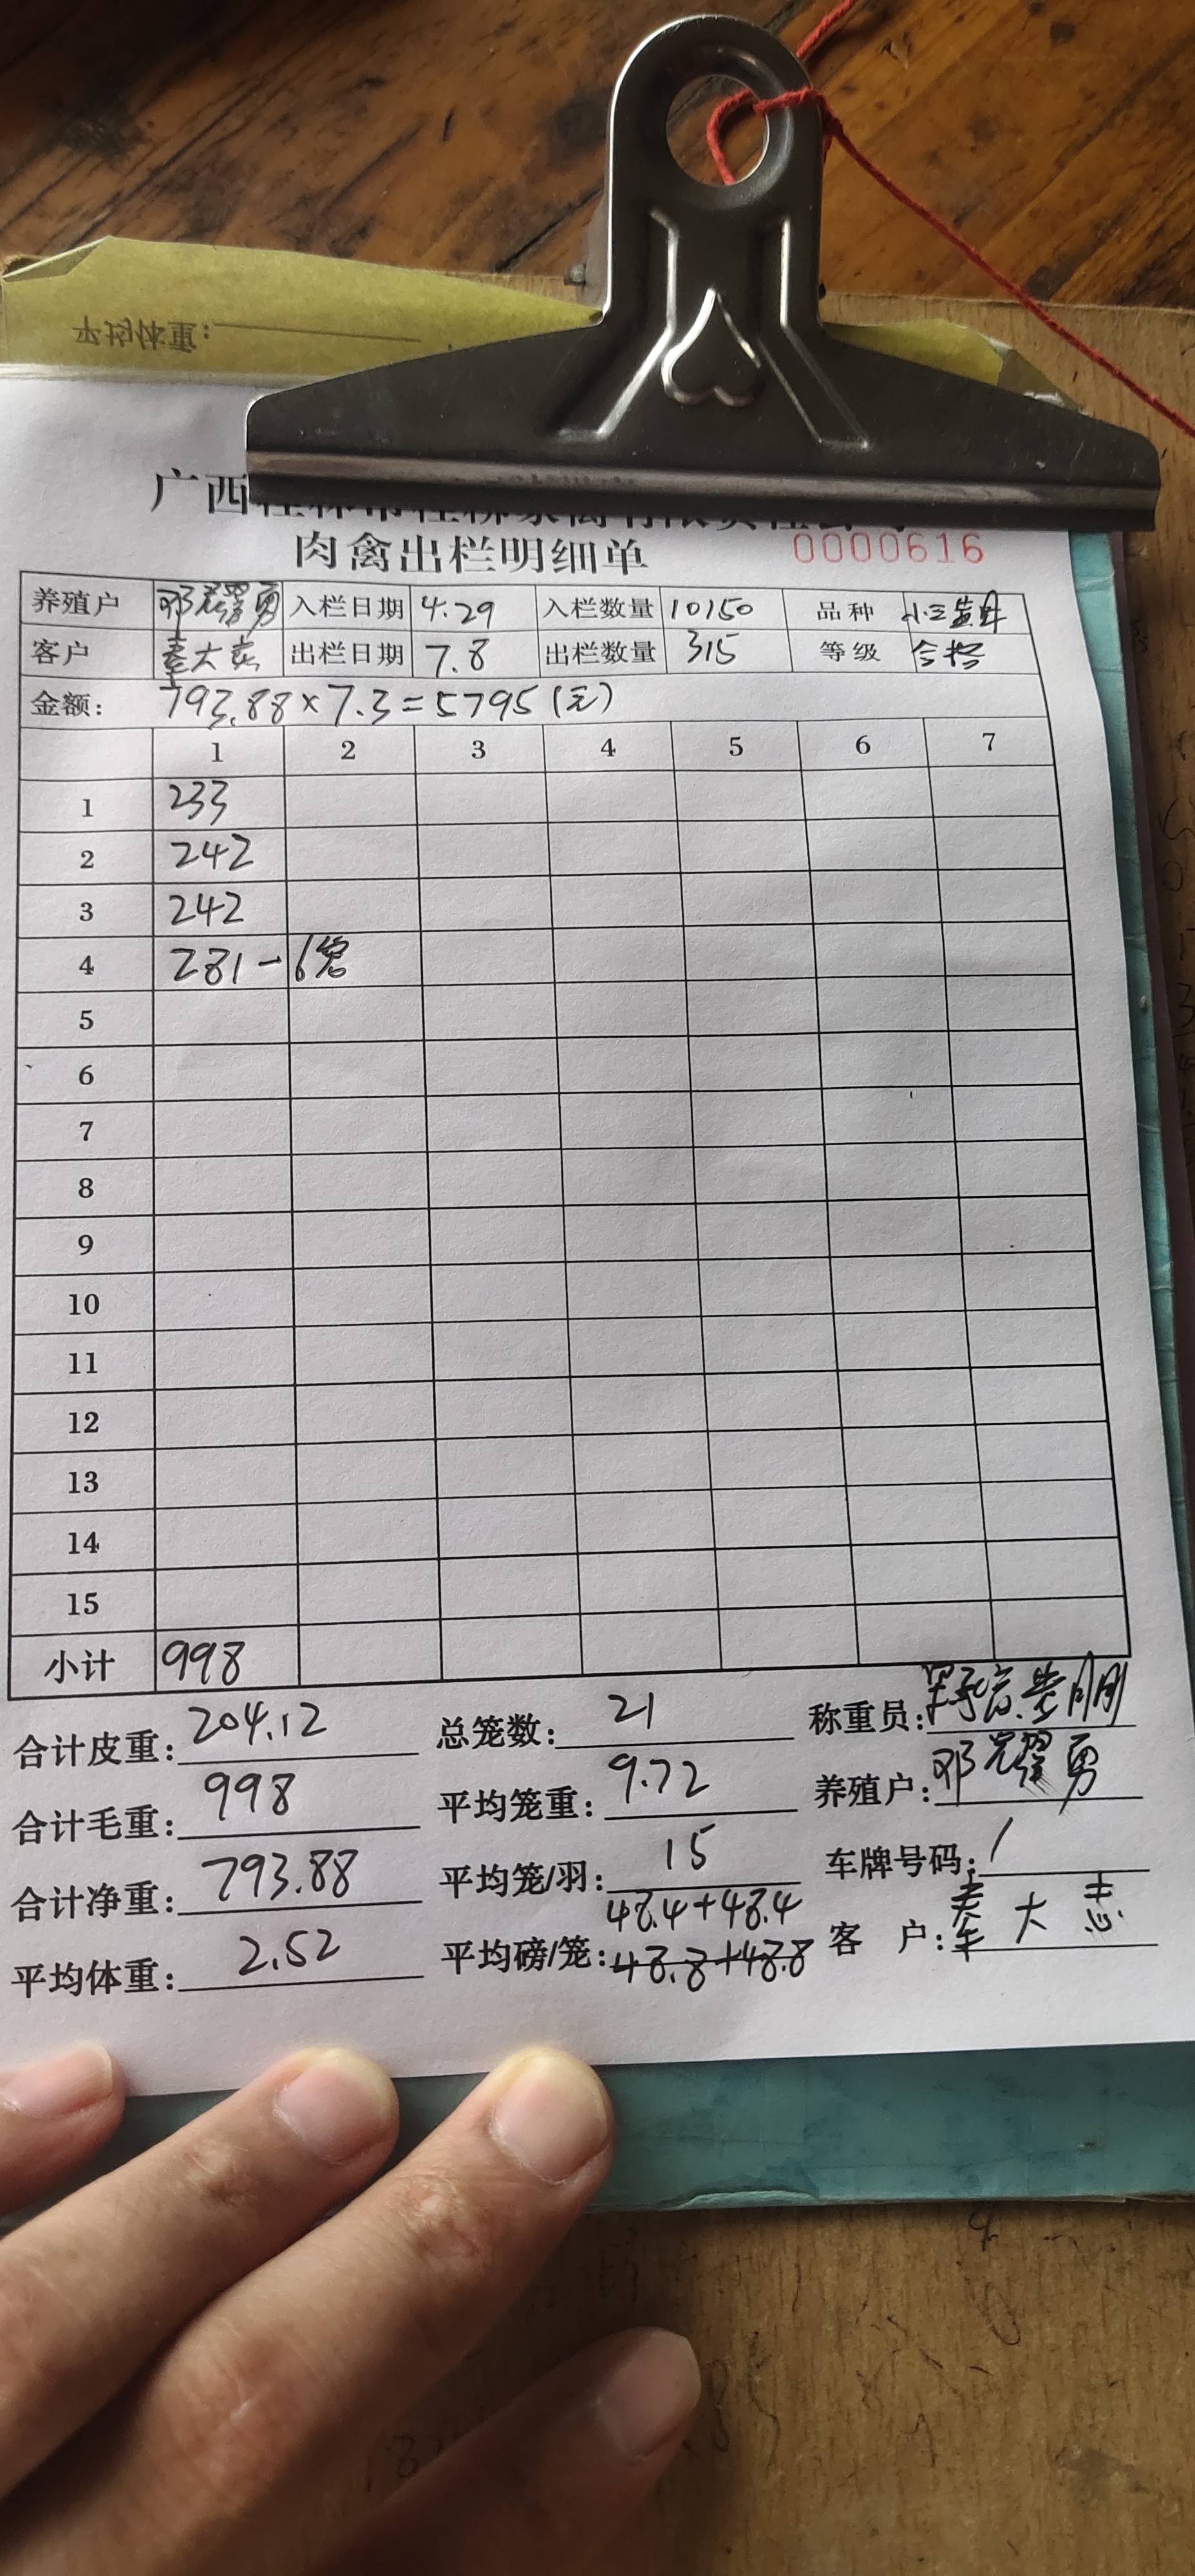 本阶体重:
广西桂林市桂柳家禽有限责任公司
肉禽出栏明细单 0000616
养殖户 邓耀勇 入栏日期 4.29 入栏数量 10150 品种
客户 秦大志 出栏日期 7.8 出栏数量 315 等级 合格
金额: 793.88×7.3=5795(元)
1 2 3 4 5 6 7
1 233
2 242
3 242
4 281-6笼
5
6
7
8
9
10
11
12
13
14
15
小计 998
合计皮重: 204.12 总笼数: 21 称重员:
合计毛重: 998 平均笼重: 9.72 养殖户: 邓耀勇
合计净重: 793.88 平均笼/羽: 15 车牌号码: /
48.4+48.4
平均体重: 2.52 平均磅/笼: 48.8+48.8 客 户: 秦大志